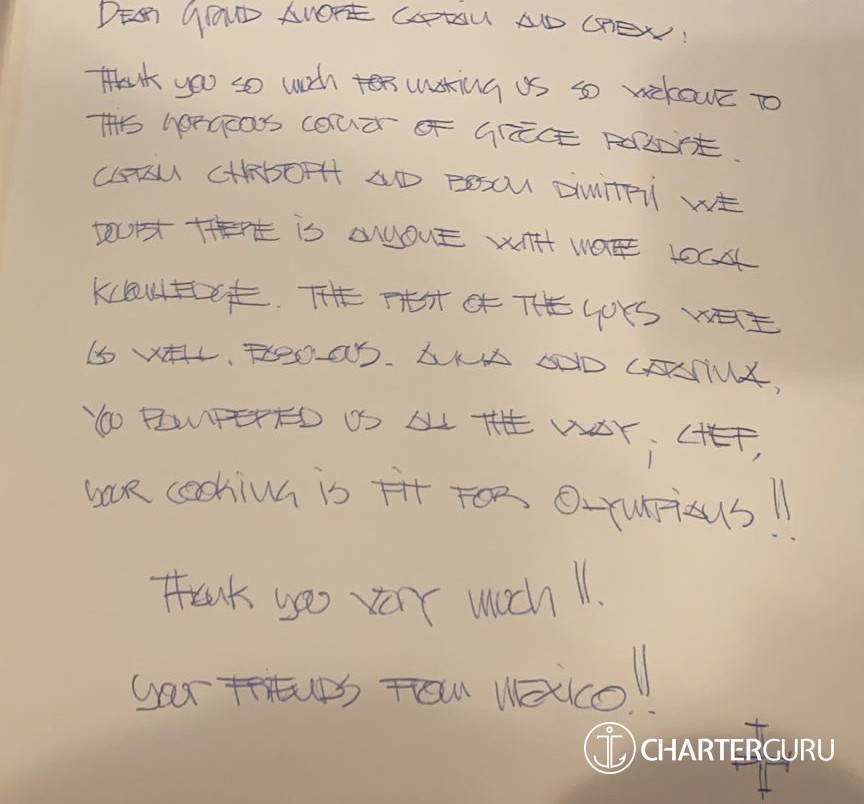 DEAR GRAND AMORE CAPTAIN AND CREW:
THANK YOU SO MUCH FOR MAKING US SO WELCOME TO
THIS GORGEOUS CORNER OF GREECE PARADISE.
CAPTAIN CHRISTOPH AND BOSUN DIMITRI WE
DOUBT THERE IS ANYONE WITH MORE LOCAL
KNOWLEDGE. THE REST OF THE GUYS WERE
AS WELL, FABULOUS. AND CATARINA,
YOU PAMPERED US ALL THE WAY; CHEF,
YOUR COOKING IS FIT FOR OLYMPIANS!!
THANK YOU VERY MUCH!!.
YOUR FRIENDS FROM MEXICO!!
CHARTERGURU